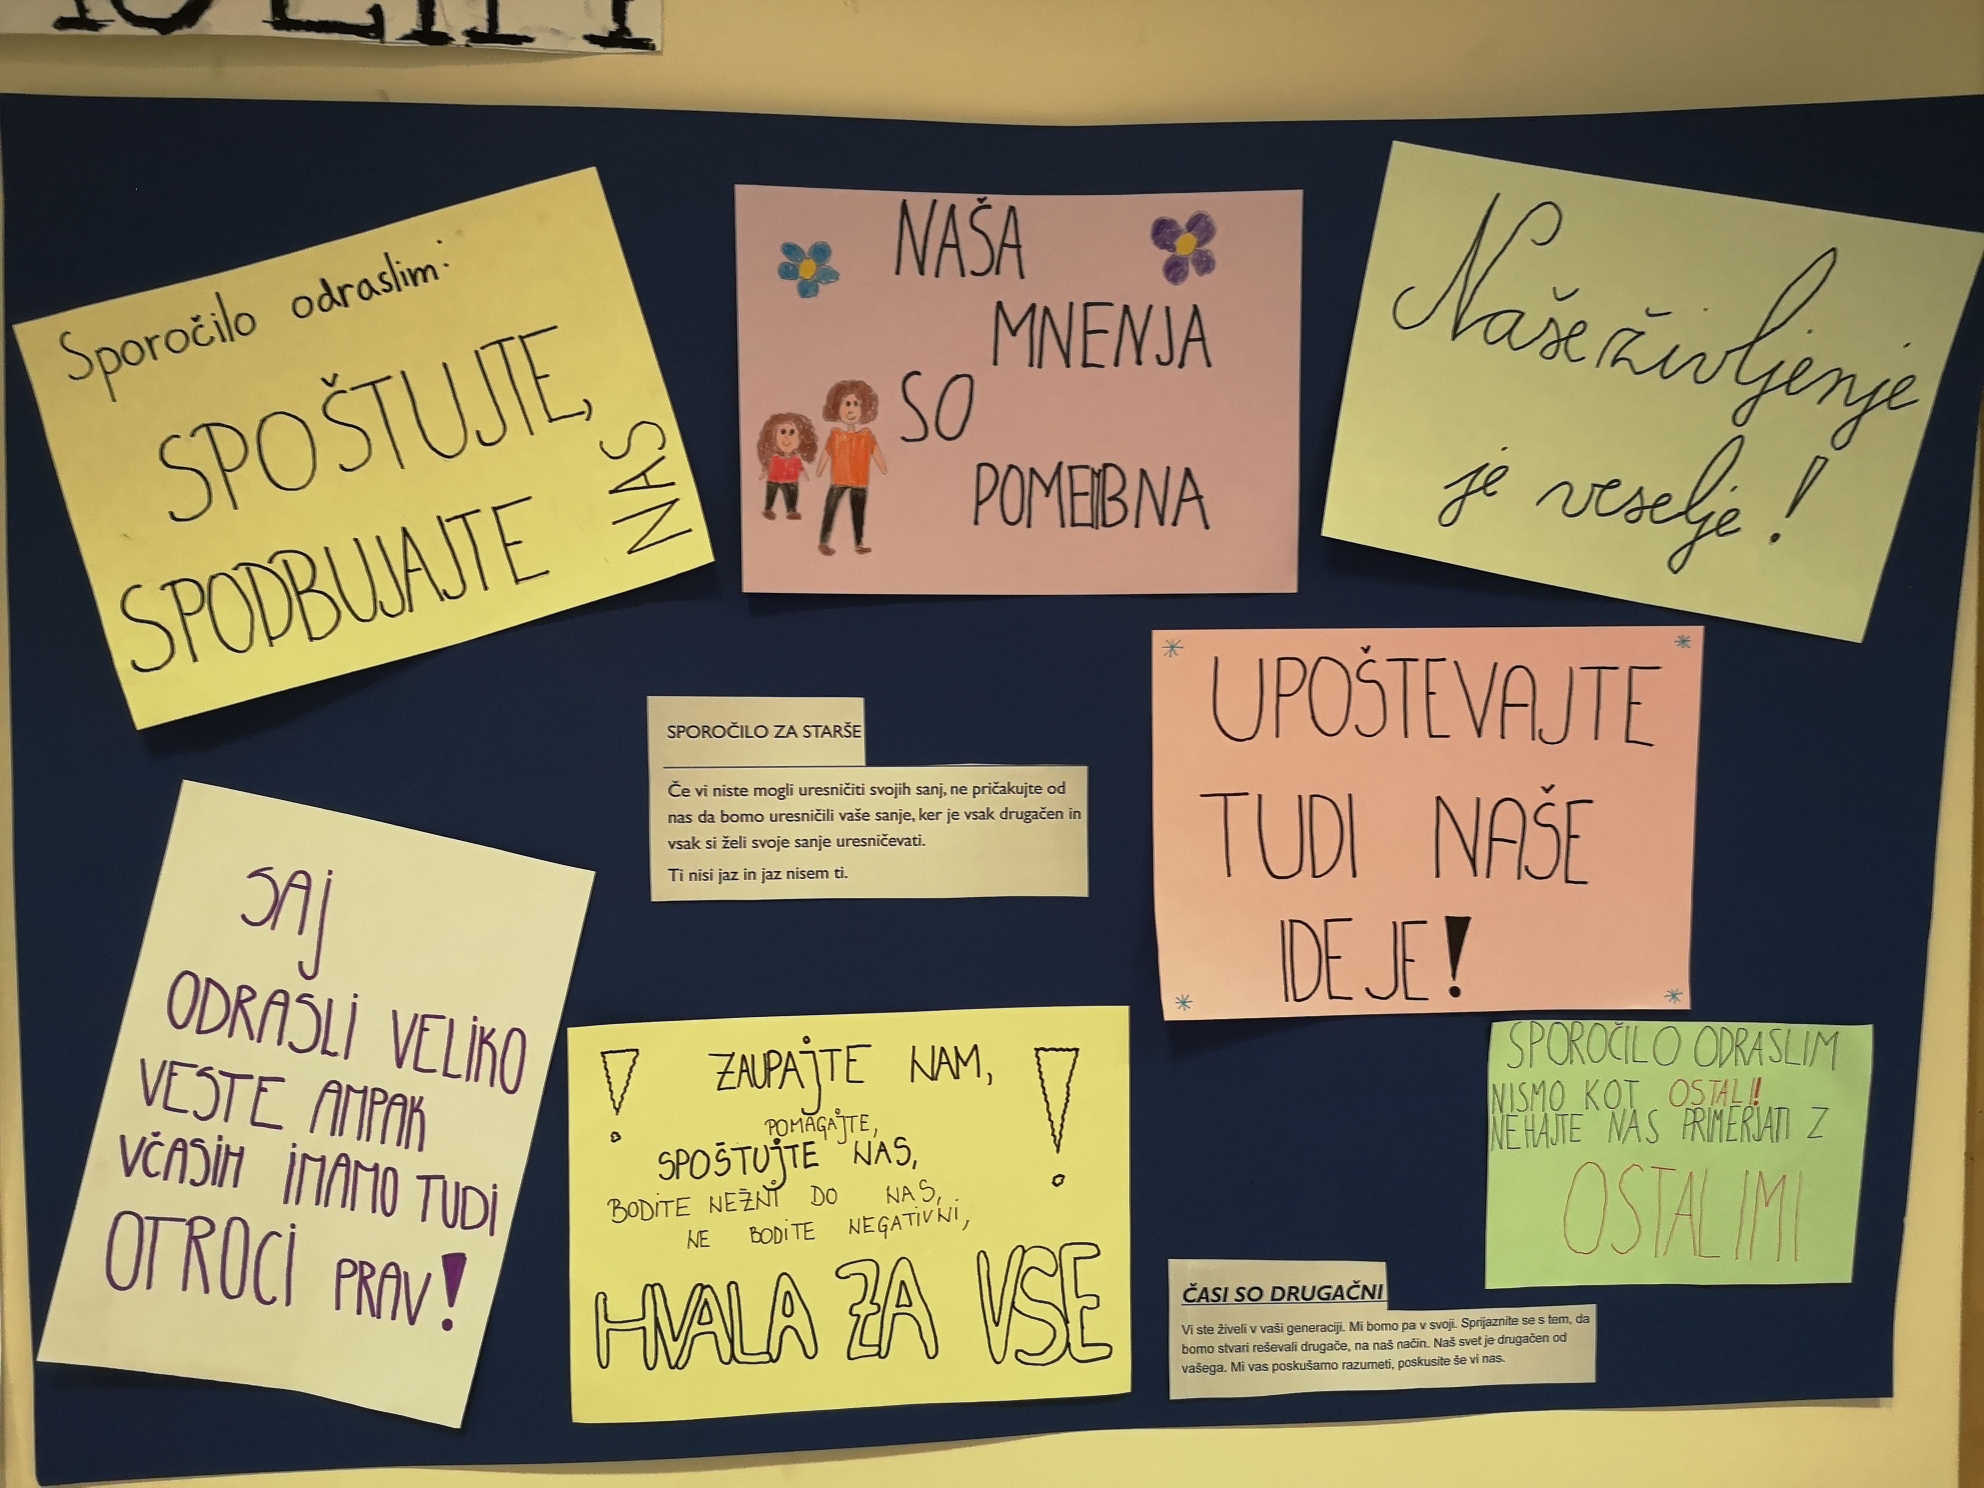 Sporočilo odraslim:
SPOŠTUJTE,
SPODBUJAJTE
NAS
NAŠA
MNENJA
SO
POMEMBNA
Naše življenje
je veselje!
SPOROČILO ZA STARŠE
Če vi niste mogli uresničiti svojih sanj, ne pričakujte od
nas da bomo uresničili vaše sanje, ker je vsak drugačen in
vsak si želi svoje sanje uresničevati.
Ti nisi jaz in jaz nisem ti.
UPOŠTEVAJTE
TUDI NAŠE
IDEJE!
SAJ
ODRASLI VELIKO
VESTE AMPAK
VČASIH IMAMO TUDI
OTROCI PRAV!
! ZAUPAJTE NAM, !
POMAGAJTE,
SPOŠTUJTE NAS,
BODITE NEŽNI DO NAS,
NE BODITE NEGATIVNI,
HVALA ZA VSE
SPOROČILO ODRASLIM
NISMO KOT OSTALI!
NEHAJTE NAS PRIMERJATI Z
OSTALIMI
ČASI SO DRUGAČNI
Vi ste živeli v vaši generaciji. Mi bomo pa v svoji. Sprijaznite se s tem, da
bomo stvari reševali drugače, na naš način. Naš svet je drugačen od
vašega. Mi vas poskušamo razumeti, poskusite še vi nas.